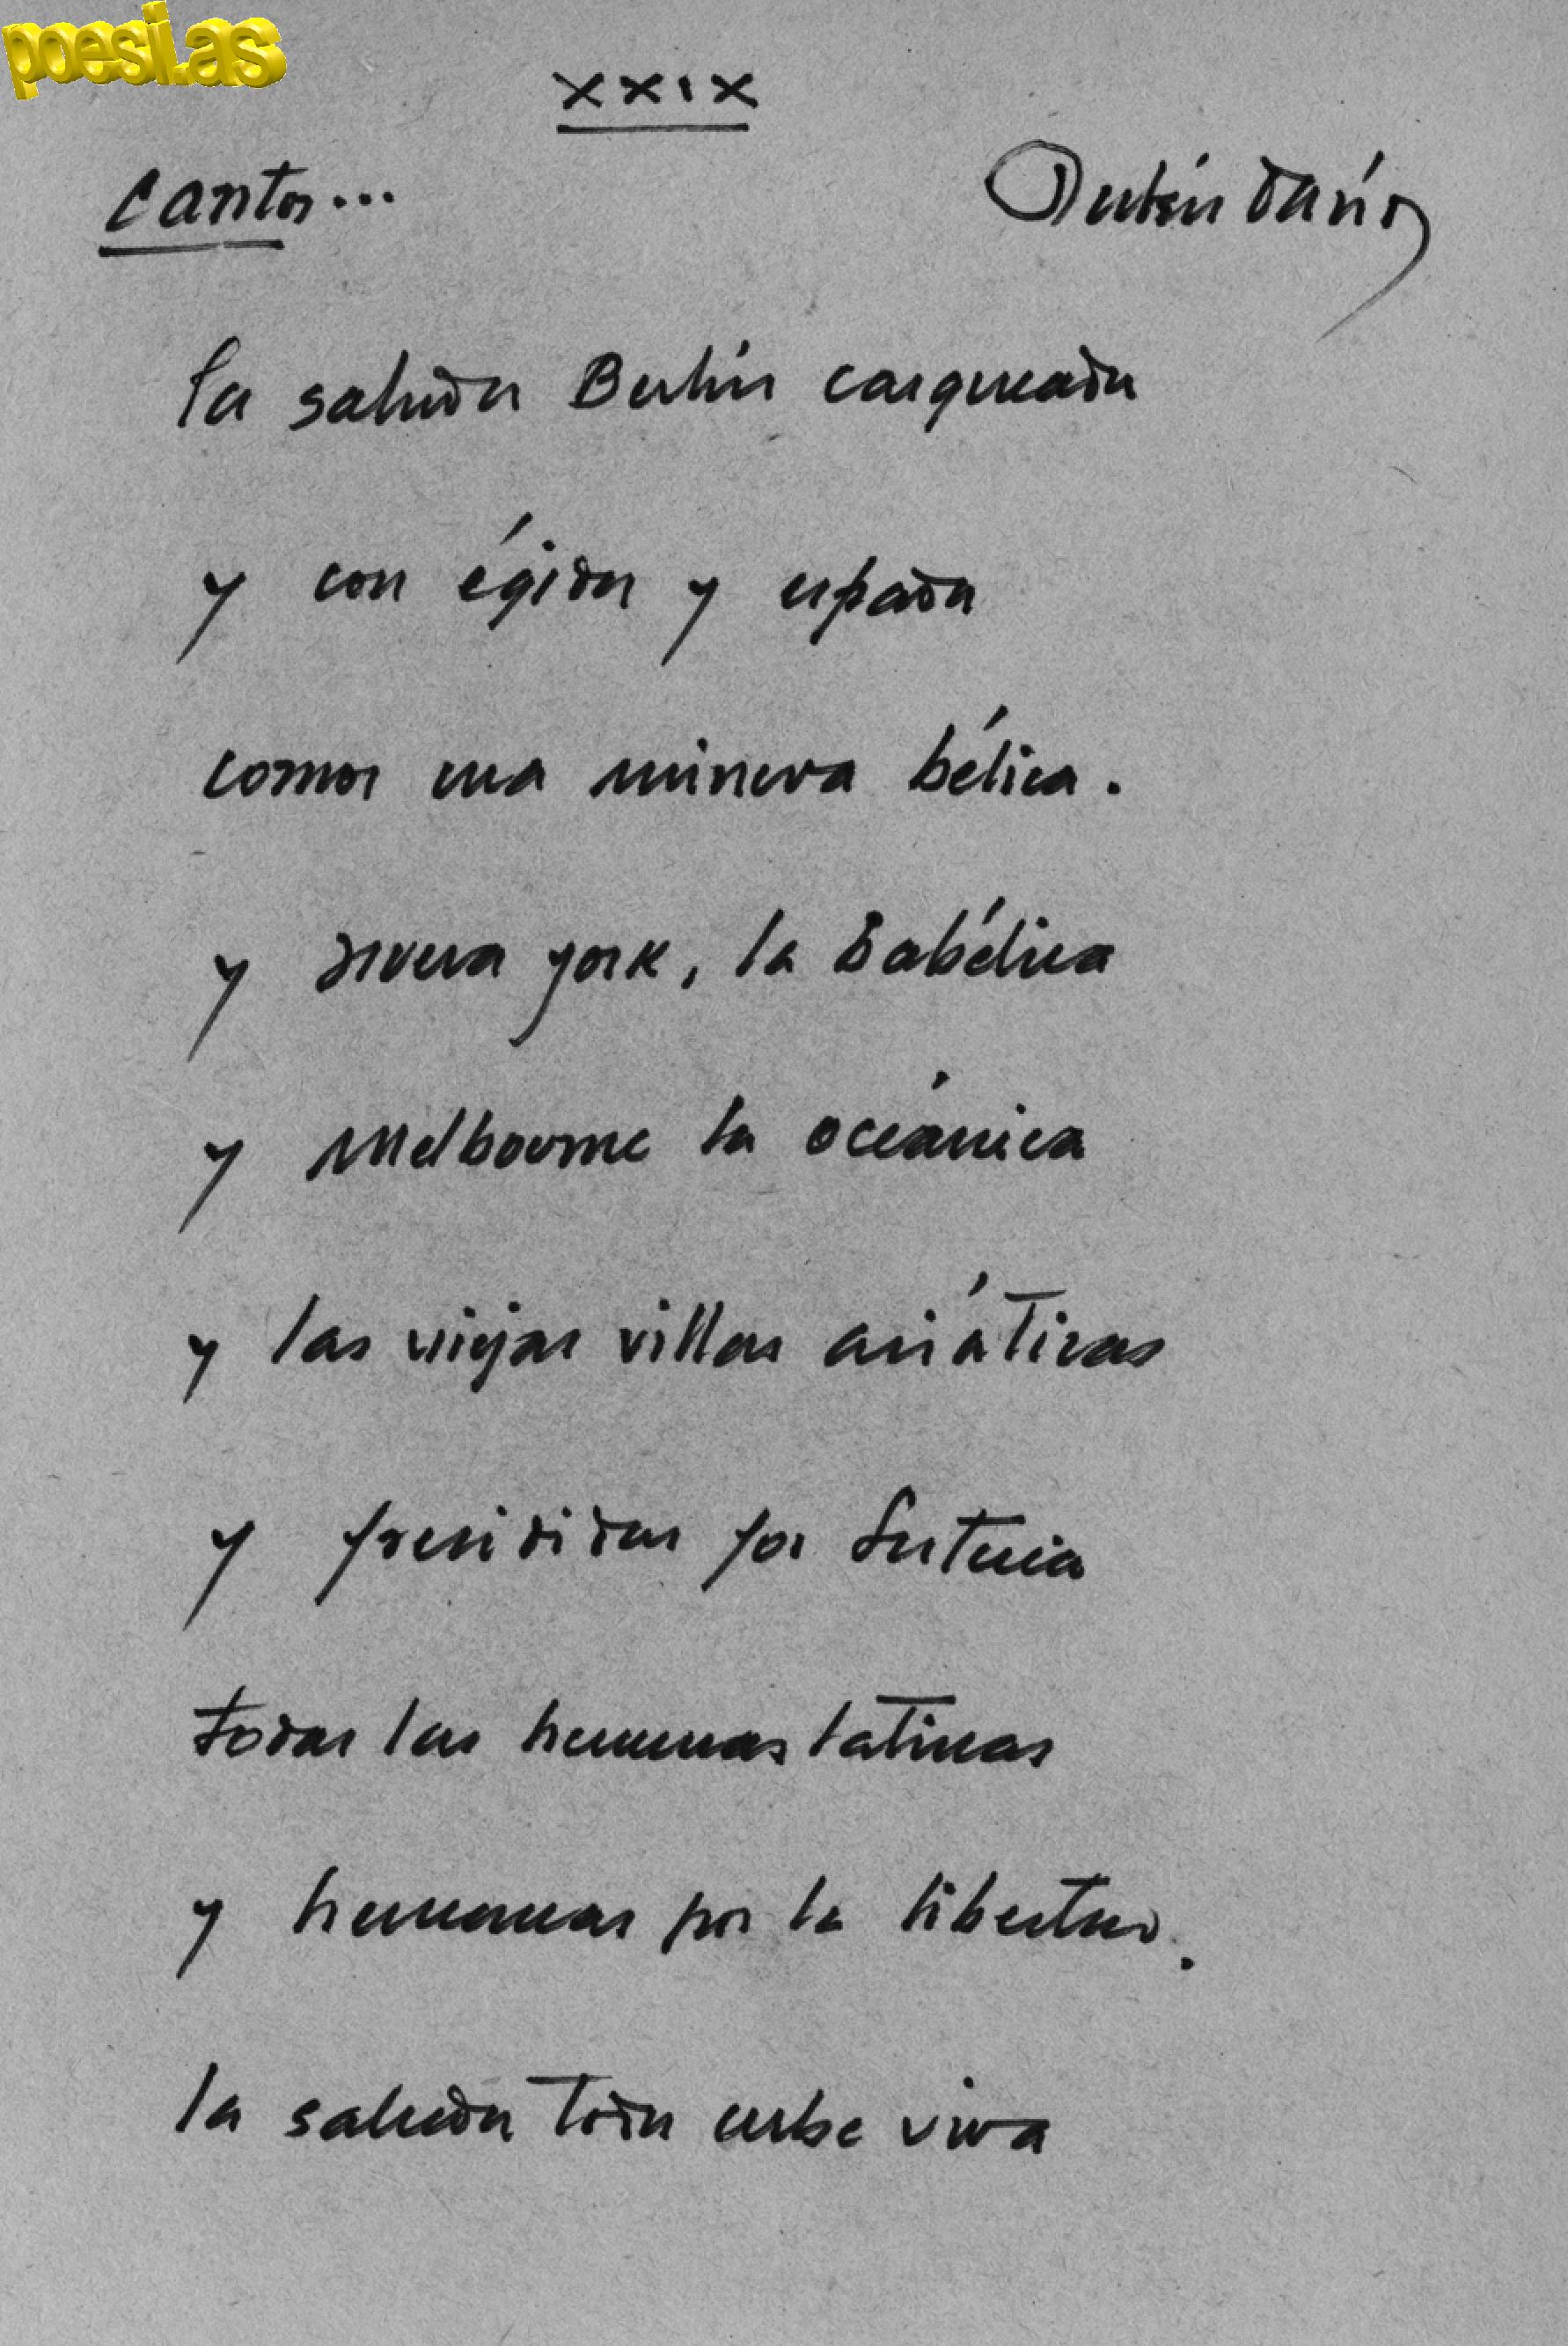 poesi.as
XXIX
Cantos...
Rubén Darío
la saluda Berlín casqueada
y con égida y espada
como una minerva bélica.
y nueva york, la Babélica
y Melbourne la oceánica
y las viejas villas asiáticas
y presididas por Lutecia
todas las hermanas latinas
y hermanas por la libertad.
la saluda toda urbe viva